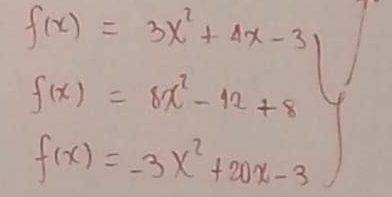 f(x) = 3x² + 4x - 3
f(x) = 8x² - 12 + 8
f(x) = -3x² + 20x - 3